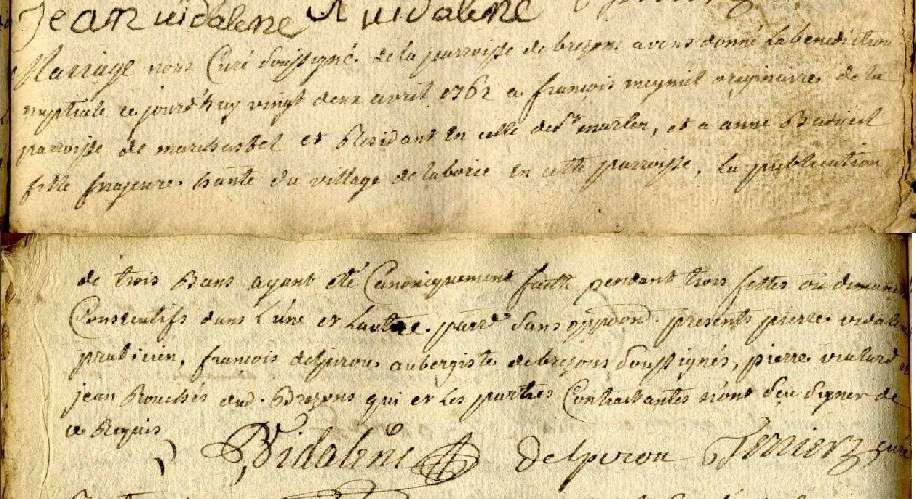 Jean vidalene A vidalene
Mariage nous Curé soussigné de la parroisse de brezons avons donné la benediction
nuptiale ce jourd'huy vingt deux avril 1762 a françois meynil de la
parroisse de marchastel et Residant en celle de St marten, et a anne
fille majeure hante du village de laborie en cette parroisse, la publication
de trois Bans ayant été Canoniquement faitte pendant trois fettes ou dimanches
Consecutifs dans l'une et l'autre parr. sans opposon. presents pierre
praticien, françois delpirou aubergiste de brezons soussignés, pierre
jean dud. Brezons qui et les parties Contractantes n'ont sçu signer de
ce Requis
Vidalenc delpirou curé